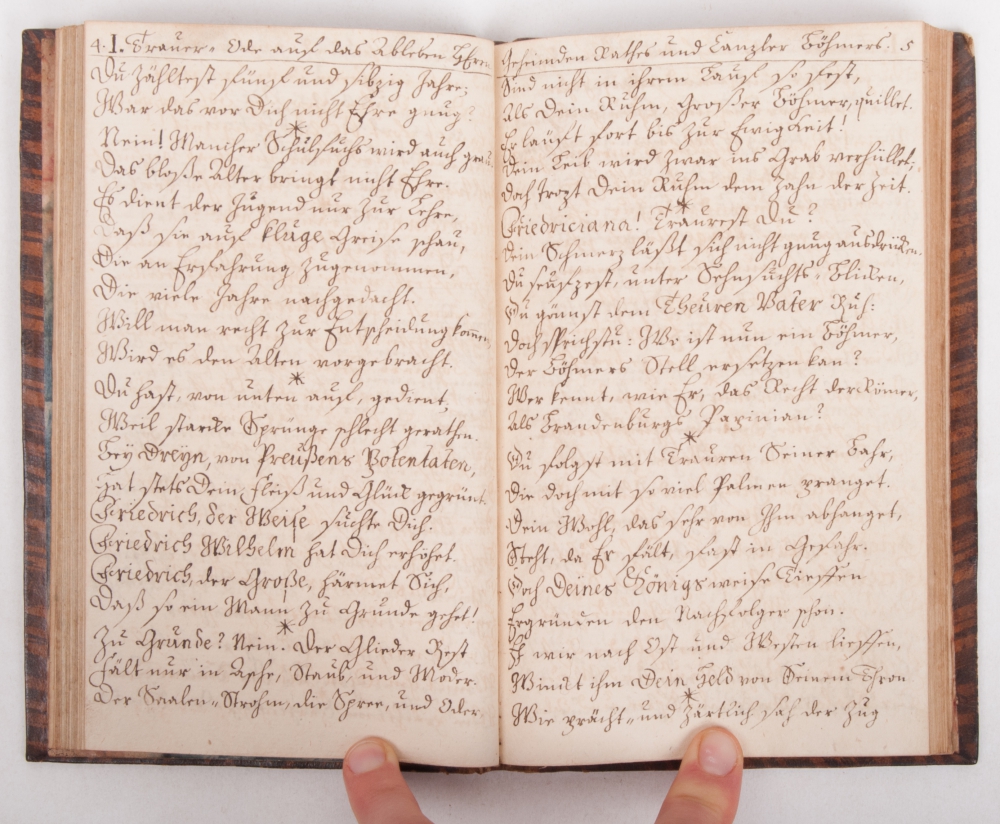 4. I. Trauer-Ode auf das Ableben Herrn
Du zähltest fünf und sibzig Jahre;
War das vor Dich nicht Ehre gnug?
Nein! Mancher Schulfuchs wird auch grau,
Das bloße Alter bringt nicht Ehre.
Es dient der Jugend nur zur Lehre,
Daß sie auf kluge Greise schau,
Die an Erfahrung zugenommen,
Die viele Jahre nachgedacht.
Will man recht zur Entscheidung kommen,
Wird es den Alten vorgebracht.
*
Du hast, von unten auf, gedient,
Weil starcke Sprünge schlecht gerathen.
Bey Dreyn, von Preußens Potentaten,
Hat stets Dein Fleiß und Glück gegrünt.
Friedrich, der Weise suchte Dich.
Friedrich Wilhelm hat Dich erhöhet.
Friedrich, der Große, härmet Sich,
Daß so ein Mann zu Grunde gehet!
*
Zu Grunde? Nein. Der Glieder Rest
Fält nur in Asche, Staub, und Moder.
Der Saalen-Strohm, die Spree, und Oder,
Geheimden Rathes und Canzler Böhmers. 5
Sind nicht in ihrem Lauf so fest,
Als Dein Ruhm, Großer Böhmer, quillet.
Er läuft fort bis zur Ewigkeit!
Dein Leib wird zwar ins Grab verhüllet;
Doch trozt Dein Ruhm dem Zahn der Zeit.
*
Friedriciana! Traurest Du?
Dein Schmerz läßt sich nicht gnug ausdrücken.
Du seufzest, unter Sehnsuchts-Blicken,
Du gönnst dem Theuren Vater Ruh:
Doch sprichstu: Wo ist nun ein Böhmer,
Der Böhmers Stell ersetzen kan?
Wer kennt, wie Er, das Recht der Römer,
Als Brandenburgs Papinian?
*
Du folgst mit Trauren Seiner Bahr,
Die doch mit so viel Palmen pranget.
Dein Wohl, das sehr von Ihm abhanget,
Steht, da Er fält, fast in Gefahr.
Doch Deines Königs weise Tieffen
Ergründen den Nachfolger schon.
Eh wir nach Ost und Westen lieffen,
Winckt ihm Dein Held von Seinem Thron
*
Wie prächt- und zärtlich sah der Zug